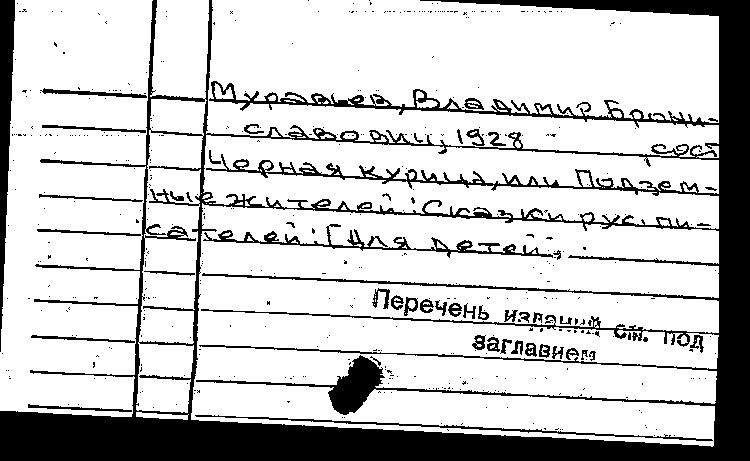 Муравьев, Владимир Брони-
славович, 1928 , сост
Черная курица, или Подзем-
ные жителей: Сказки рус. пи-
сателей: [Для детей,
Перечень изданий см. под
заглавием